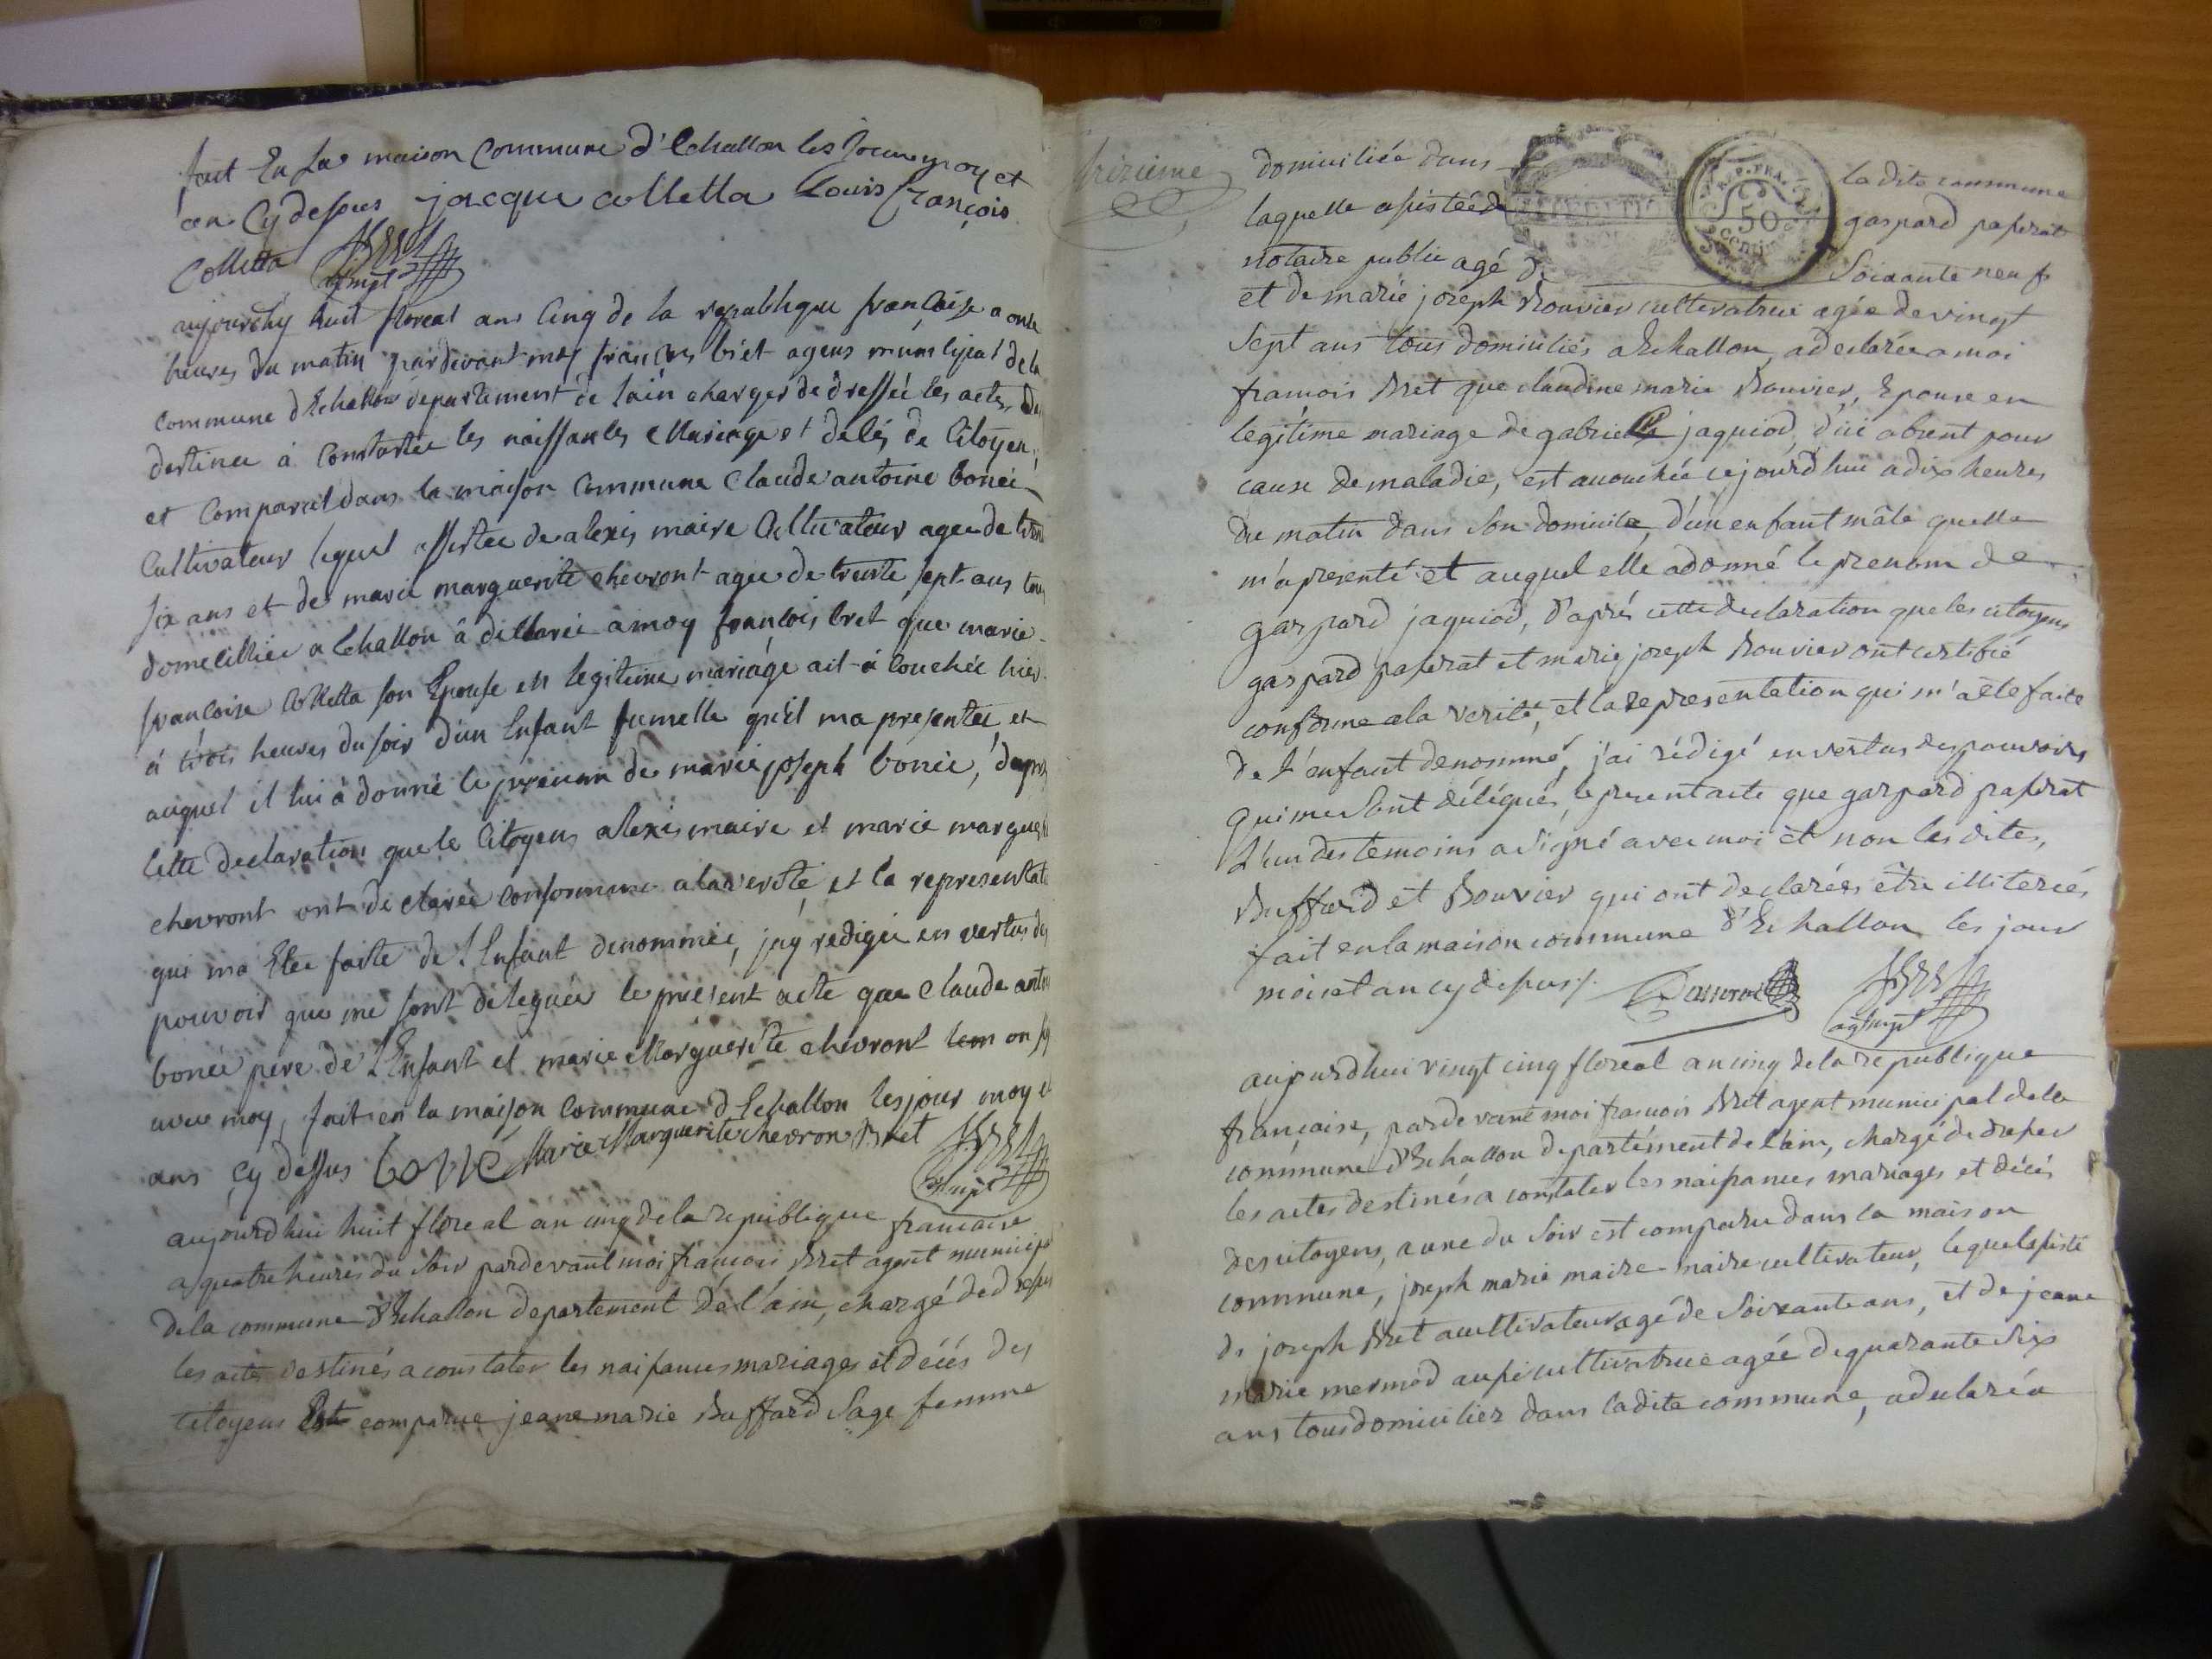 fait En La maison Commune d'Echallon les Jour moy et
an Cy dessus jacque colletta Louis françois
Colletta
agt mpl
aujourdhy huit floreal ans Cinq de la republique françaisse a onze
heures du matin pardevant moy françois bret agens municipal de la
Commune dEchallon departement de lain charger de dressée les actes
destinee à Constatée les naissances Mariage et delés de Citoyen,
et Comparut dans la maison Commune Claude antoine bonée
Cultivateur lequel assistée de alexis maire Cultivateur agee de trente
six ans et de marie marguerite chevront agee de trente sept ans tous
domecilliée a Echallon â dellarée amoy françois bret que marie
françoise Colletta son Epouse en legitime mariage ait â Couchée hier
à trois heures du soir d'un Enfant fumelle qu'il ma presentée et
auquel il lui à donné le prenom de marie joseph bonée, d'apres
Cette declaration que le Citoyens alexis maire et marie marguerit
chevront ont declarée conformme alaverité, et la representat
qui ma Etee faite de L'Enfant denommée, jay redigée en vertus des
pouvoir qui me sont deleguée le présent acte que Claude antoi
bonée pere de L'Enfant et marie Marguerite chevront on sy
avec moy, fait en la maison Commune dEchallon les jour moy e
ans Cy dessus bonné Marie Marguerite chevron Bret
agt mpl
aujourd hui huit floreal an cinq de la republique francaise
a quatre heures du soir pardevant moi françois Bret agent municip
de la commune d'Echallon departement de l'ain, chargé de dresser
les actes destinés a constater les naissances mariages et décés des
citoyens Est comparue jeane marie Buffard Sage femme
trizieme
domiciliée dans la dite commune
laquelle assistée de gaspard passerat
REP. FRA.
50
centimes
notaire public agé de Soixante neuf
et de marie joseph Bouvier cultivatrice agée de vingt
Sept ans tous domiciliés a Echallon, a declarée a moi
françois Bret que claudine marie Bouvier, Epouse en
legitime mariage de gabriel jaquiod, d'ici absent pour
cause de maladie, est acouchée cejourd'hui a dix heures
du matin dans Son domicile, d'un enfant mâle quelle
m'a presenté et auquel elle a donné le prenom de
gaspard jaquiod, d'après cette declaration que les citoyens
gaspard passerat et marie joseph Bouvier ont certifié
conforme a la verité, et la representation qui m'a été faite
de l'enfant denommé, j'ai rédigé en vertus des pouvoirs
qui me Sont délégués, le present acte que gaspard passerat
L'un des temoins a signé avec moi et non les dites,
Buffard et Bouvier qui ont declarées être illiterées
fait en la maison commune d'Echallon les jour
mois et an cy dessus/.
agt mpl
aujourdhui vingt cinq floreal an cinq de la republique
française, pardevant moi françois Bret agent municipal de la
commune d'Echallon departément de L'ain, chargé de dresser
les actes destinés a constater les naissances mariages et décés
des citoyens, a une du Soir est comparu dans la maison
commune, joseph marie maire-maire cultivateur, lequel assisté
de joseph Bret acultivateur agé de Soixante ans, et de jeane
marie mermod aussi cultivatrice agée de quarante Six
ans tous domiciliez dans ladite commune, a declaré a